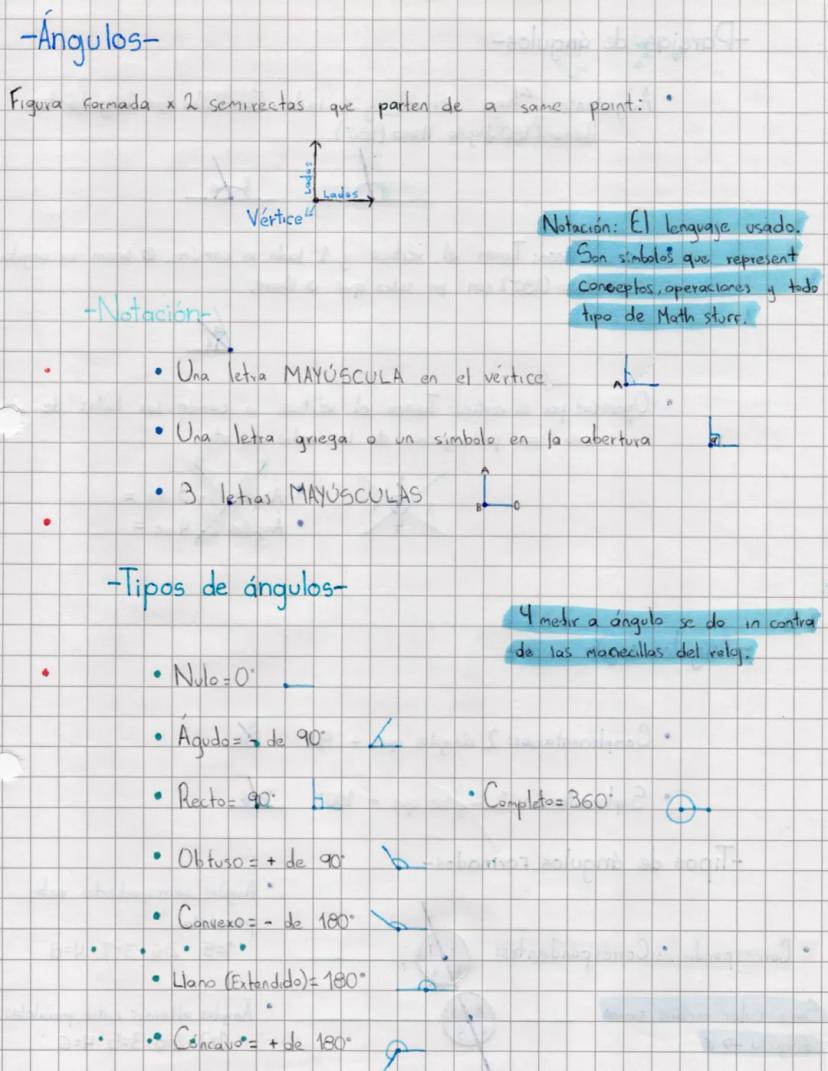 -Ángulos-
Figura formada x 2 semirectas que parten de a same point:
Lados
Lados
Vértice
Notación: El lenguaje usado.
Son símbolos que represent
conceptos, operaciones y todo
tipo de Math stuff.
-Notación-
• Una letra MAYÚSCULA en el vértice
A
• Una letra griega o un símbolo en la abertura
• 3 letras MAYÚSCULAS
A
B
C
-Tipos de ángulos-
4 medir a ángulo se do in contra
de las manecillas del reloj.
• Nulo=0°
• Águdo= - de 90°
• Recto= 90°
• Completo=360°
• Obtuso= + de 90°
• Convexo= - de 180°
• Llano (Extendido)= 180°
• Cóncavo= + de 180°